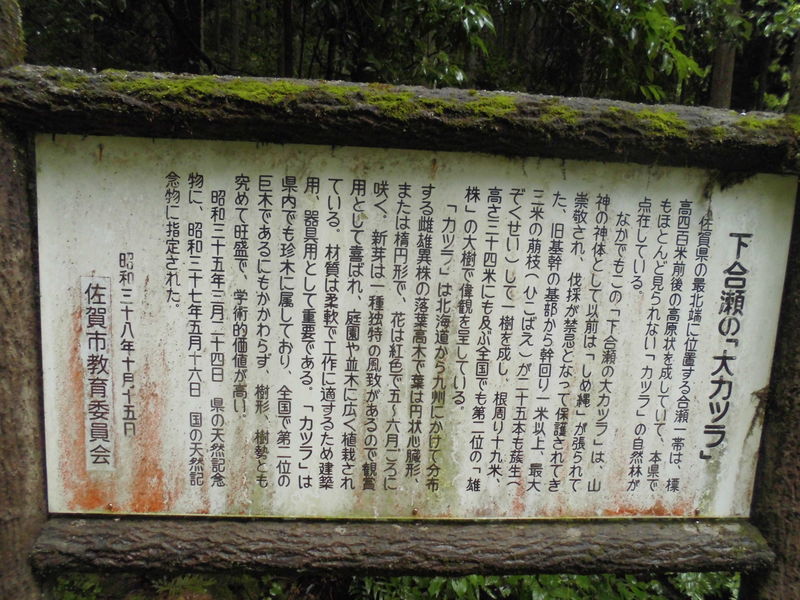 下合瀬の「大カツラ」
佐賀県の最北端に位置する合瀬一帯は、標
高四百米前後の高原状を成していて、本県で
もほとんど見られない「カツラ」の自然林が
点在している。
なかでもこの「下合瀬の大カツラ」は、山
神の神体として以前は「しめ縄」が張られて
崇敬され、伐採が禁忌となって保護されてき
た、旧基幹の基部から幹回り一米以上、最大
三米の萠枝(ひこばえ)が二十五本も蔟生(
ぞくせい)して一樹を成し、根周り十九米、
高さ三十四米にも及ぶ全国でも第二位の「雄
株」の大樹で偉観を呈している。
「カツラ」は北海道から九州にかけて分布
する雌雄異株の落葉高木で葉は円状心臓形、
または楕円形で、花は紅色で五〜六月ごろに
咲く。新芽は一種独特の風致があるので観賞
用として喜ばれ、庭園や並木に広く植栽され
ている。材質は柔軟で工作に適するため建築
用、器具用として重要である。「カツラ」は
県内でも珍木に属しており、全国で第二位の
巨木であるにもかかわらず、樹形、樹勢とも
究めて旺盛で、学術的価値が高い。
昭和三十五年三月二十四日 県の天然記念
物に、昭和三十七年五月十六日 国の天然記
念物に指定された。
昭和三十八年十月十五日
佐賀市教育委員会